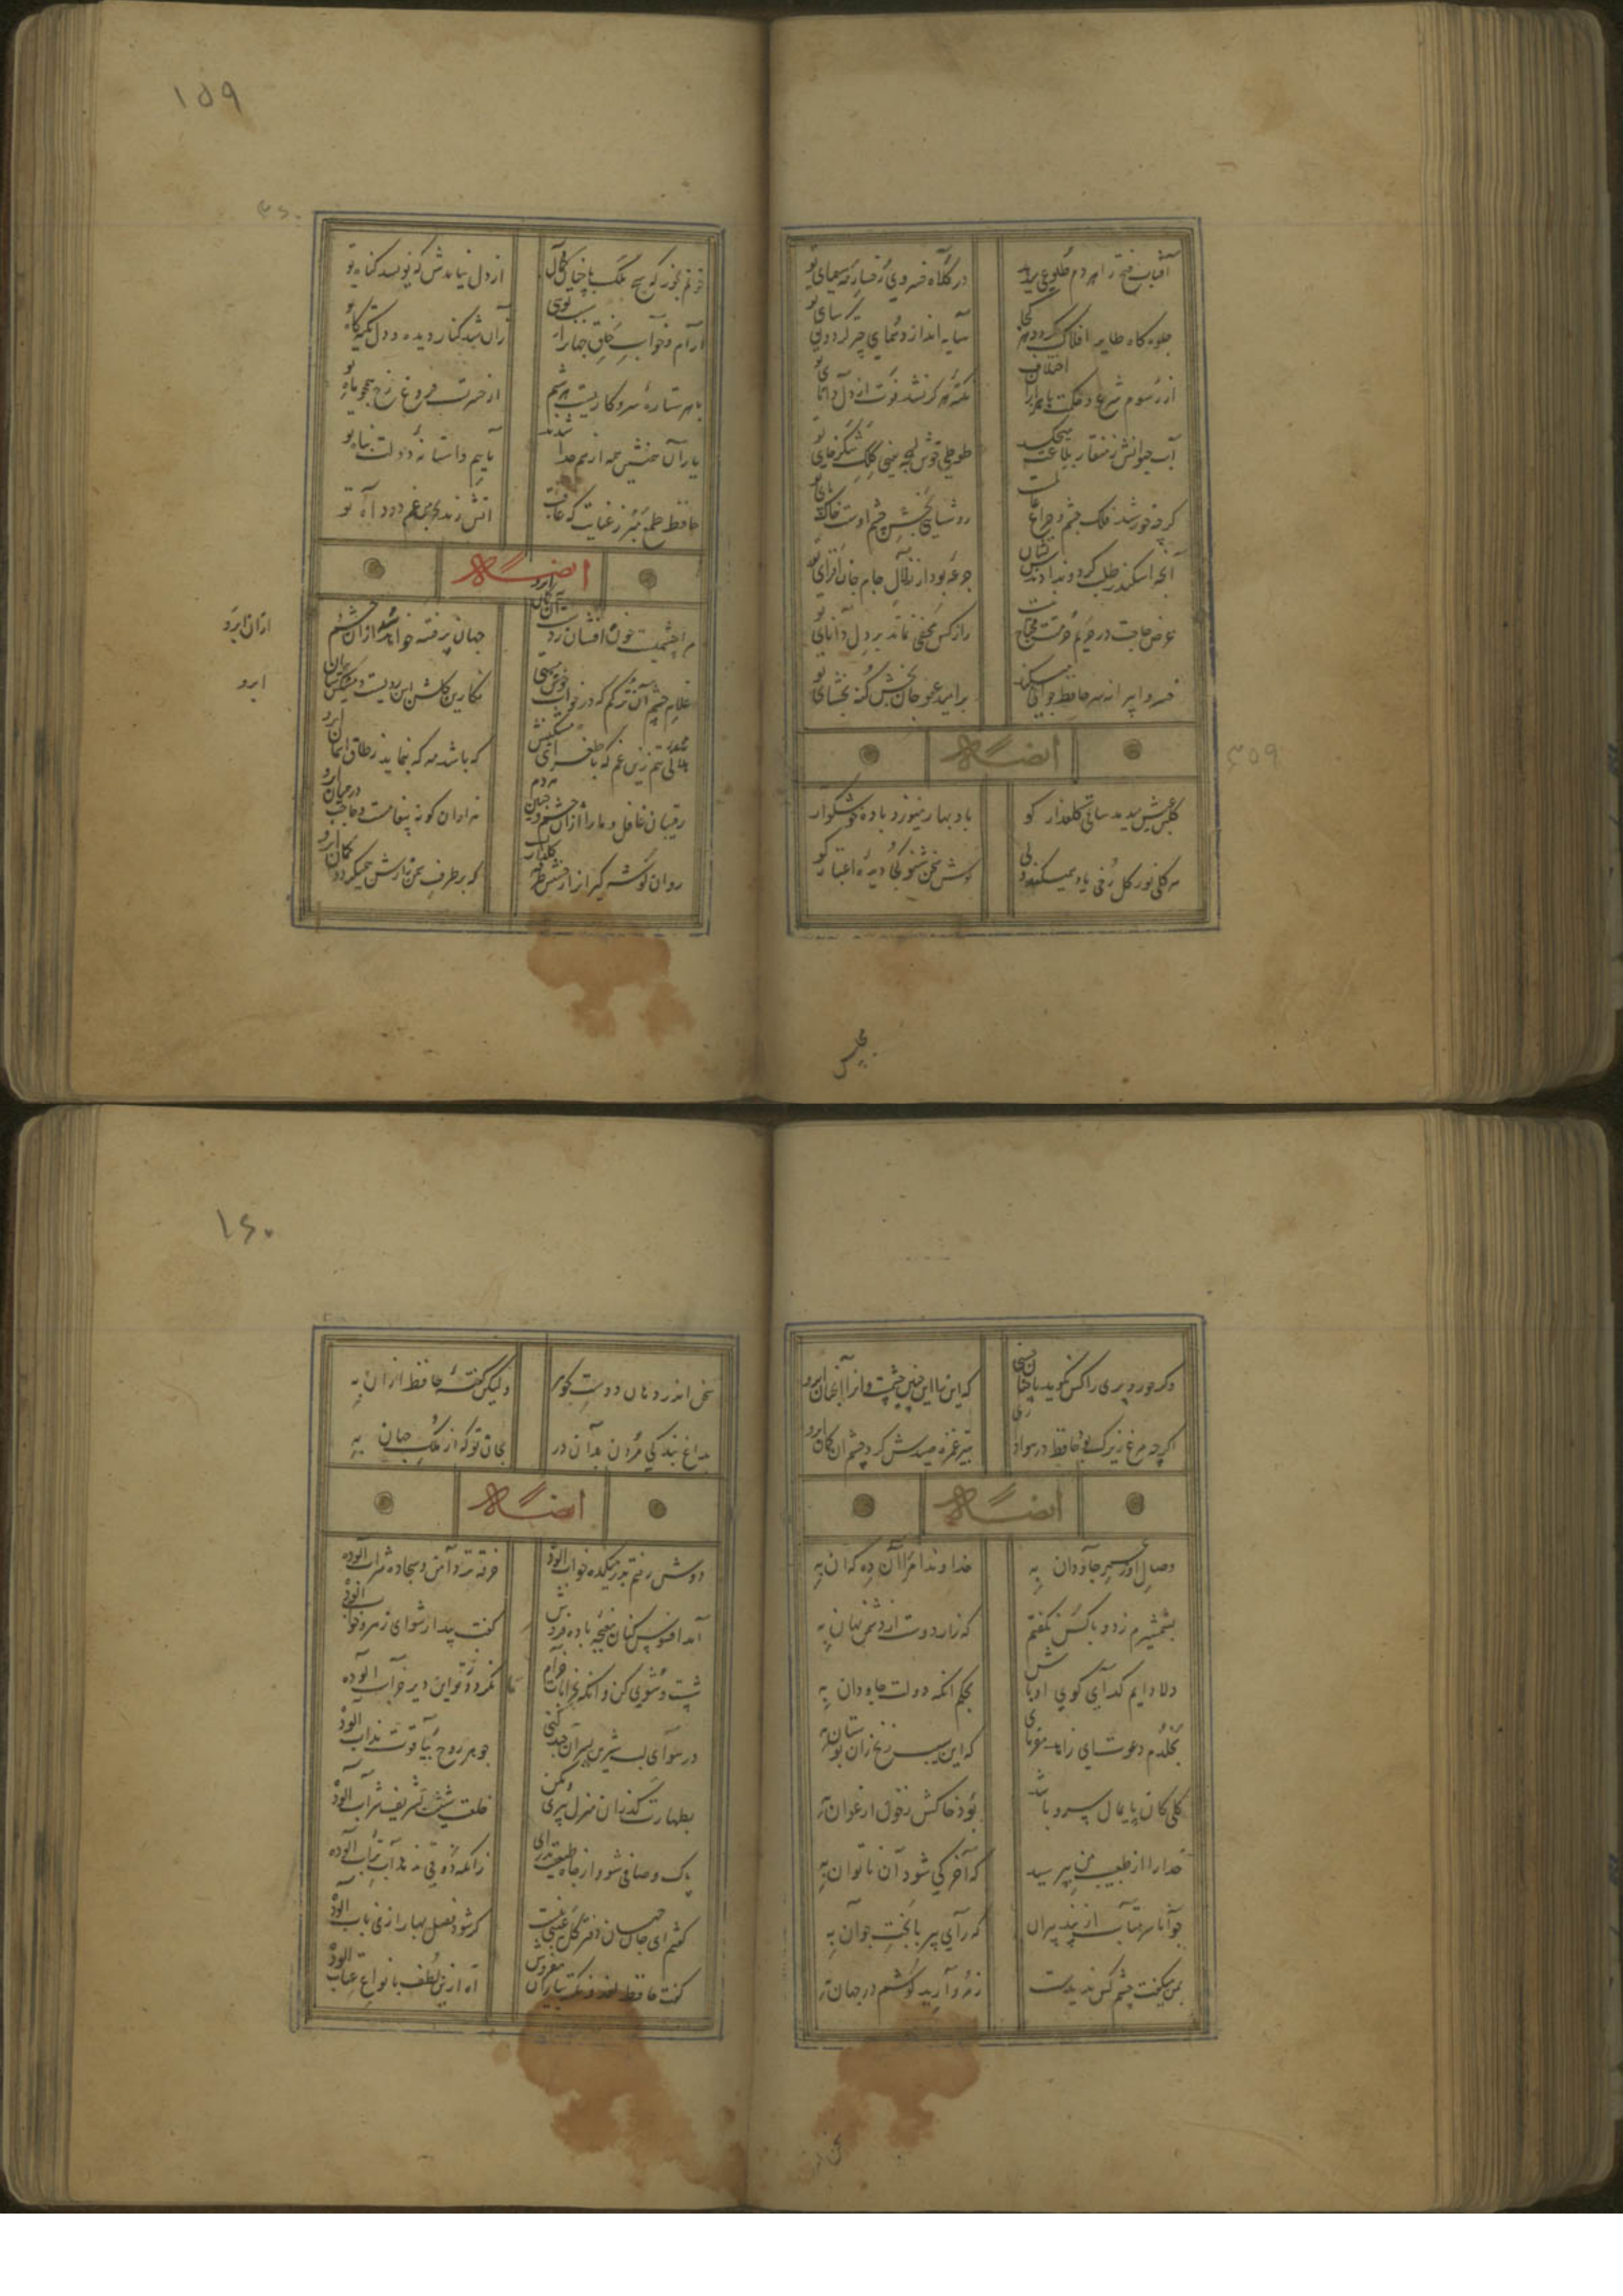 ۱۵۹
آفتاب فتح را هر دم طلوعی میدهد
در کلاه خسروی رخسار مه سیمای تو
جلوه گاه طایر افلاک گردد هر کجا
سایه اندازد همای چتر گردون سای تو
از رسوم شرع و حکمت با هزاران اختلاف
نکته هرگز نشد فوت از دل دانای تو
آب حیوانش ز منقار بلاغت میچکد
طوطی خوش لهجه یعنی کلک شکرخای تو
گرچه خورشید فلک چشم و چراغ عالمست
روشنایی بخش چشم اوست خاک پای تو
آنچه اسکندر طلب کرد و ندادندش نشان
جرعه بود از زلال جام جان افزای تو
عرض حاجت در حریم حرمتت محتاج نیست
راز کس مخفی نماند بر دل دانای تو
خسروا پیرانه سر حافظ جوانی میکند
بر امید عفو جان بخش گنه بخشای تو
ایضاً له
۳۵۹
گلبن عیش میدمد ساقی گلعذار کو
باد بهار میوزد باده خوشگوار کو
هر گل نو ز گل رخی یاد همیکند ولی
گوش سخن شنو کجا دیده اعتبار کو
مجلس
۳۶۰
خونم بخور که هیچ ملک با چنان جمال
از دل نیایدش که نویسد گناه تو
آرام و خواب خلق جهان را سبب توئی
زان شد کنار دیده و دل تکیه گاه تو
با هر ستاره سر و کاریست هر شبم
از حسرت فروغ رخ همچو ماه تو
یاران همنشین همه از هم جدا شدند
مائیم و آستانه دولت پناه تو
حافظ طمع مبر ز عنایت که عاقبت
آتش زند بخرمن غم دود آه تو
ایضاً له
مرا چشمیست خون افشان ز دست آن کمان ابرو
جهان پر فتنه خواهد شد از آن چشم
از آن ابرو
غلام چشم آن ترکم که در خواب خوش مستی
نگارین گلشن این رویست و مشکین سایبان
ابرو
هلالی شد تنم زین غم که با طغرای مشکینش
که باشد مه که بنماید ز طاق آسمان ابرو
رقیبان غافل و ما را از آن چشم و جبین هر دم
هزاران گونه پیغامست و حاجب در میان ابرو
روان گوشه گیران را جبینش طرفه گلزاریست
که بر طرف سمن زارش همیگردد کمان ابرو
۱۶۰
دگر حور و پری را کس نگوید با چنین حسنی
که این را این چنین چشمست و آنرا آنچنان ابرو
اگرچه مرغ زیرک بود حافظ در هواداری
بتیر غمزه صیدش کرد چشم آن کمان ابرو
ایضاً له
وصال او ز عمر جاودان به
خداوندا مرا آن ده که آن به
بشمشیرم زد و با کس نگفتم
که راز دوست از دشمن نهان به
دلا دایم گدای کوی او باش
بحکم آنکه دولت جاودان به
بخلدم دعوت ای زاهد مفرمای
که این سیب زنخ زان بوستان به
گلی کان پایمال سرو ما شد
بود خاکش ز خون ارغوان به
خدا را از طبیب من بپرسید
که آخر کی شود آن ناتوان به
جوانا سر متاب از پند پیران
که رای پیر با بخت جوان به
بمن میگفت چشم کس ندیدست
ز مروارید گوشم در جهان به
سخن
سخن اندر دهان دوست گوهر
ولیکن گفته حافظ از آن به
بداغ بندگی مردن بر آن در
بجان تو که از ملک جهان به
ایضاً له
دوش رفتم بدر میکده خواب آلوده
خرقه تر دامن و سجاده شراب آلوده
آمد افسوس کنان مغبچه باده فروش
گفت بیدار شو ای رهرو خواب آلوده
شست و شویی کن و آنگه بخرابات خرام
تا نگردد ز تو این دیر خراب آلوده
در هوای لب شیرین پسران چند کنی
جوهر روح بیاقوت مذاب آلوده
بطهارت گذران منزل پیری و مکن
خلعت شیب بتشریف شباب آلوده
پاک و صافی شو و از چاه طبیعت بدر آی
که صفایی ندهد آب تراب آلوده
گفتم ای جان جهان دفتر گل عیبی نیست
که شود فصل بهار از می ناب آلوده
گفت حافظ لغز و نکته بیاران مفروش
آه ازین لطف بانواع عتاب آلوده